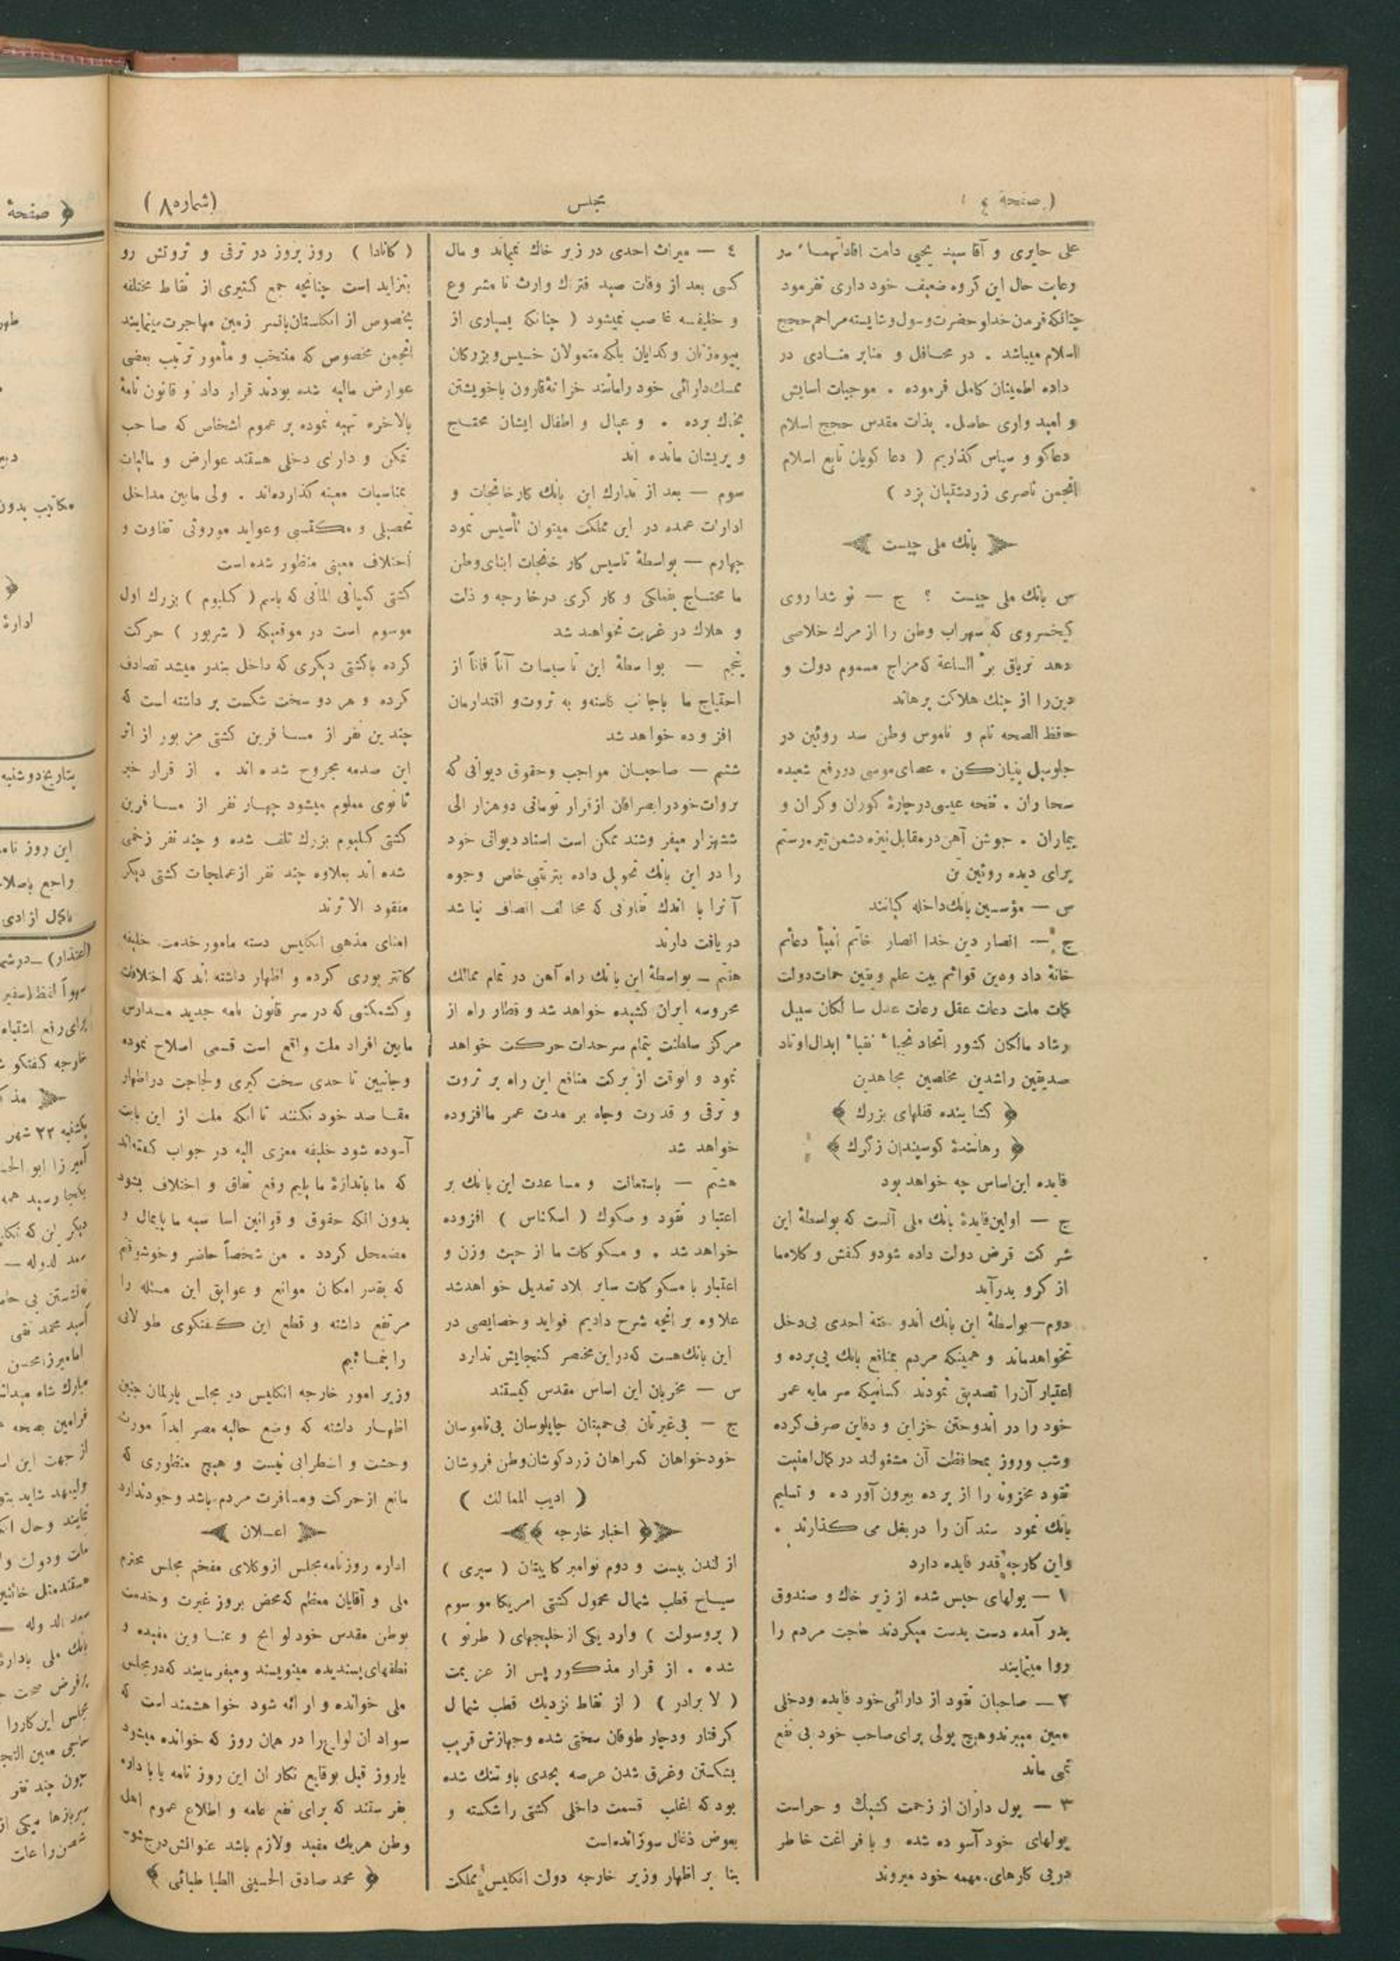 (صفحهٔ ٤)
مجلس
(شماره ۸)
علی حایری و آقا سید یحیی دامت افاداتهما در
رعایت حال این گروه ضعیف خود داری نفرمود
چنانکه فرمدن خدا و حضرت رسول و شایسته مراحم حجج
اسلام میباشد . در محافل و منابر منادی در
داده اطمینان کامل فرموده . موجبات اسایش
و امید واری حاصل . بذات مقدس حجج اسلام
دعاگو و سپاس گذاریم ( دعا گویان تابع اسلام
انجمن ناصری زردشتیان یزد )
بانك ملی چیست
س بانك ملی چیست ؟ ج — نو شدا روی
کیخسروی که سهراب وطن را از مرك خلاصی
دهد تریاق برء الساعة که مزاج مسموم دولت و
دین را از چنك هلاکت برهاند
حافظ الصحه تام و ناموس وطن سد روئین در
جلو سیل بنیان کن . عصای موسی در رفع شعبده
سحاران . نفحه عیسی در چارهٔ کوران و کران و
بیماران . جوشن آهن در مقابل نیزه دشمن تیر رستم
برای دیده روئین تن
س — مؤسسین بانك داخله کیانند
ج — انصار دین خدا انصار خاتم انبیا دعائم
خانهٔ داد و دین قوائم بیت علم و یقین حمات دولت
کمات ملت دعات عقل رعات عدل سالکان سبیل
رشاد مالکان کشور اتحاد نجبا نقبا ابدال اوتاد
صدیقین راشدین مخلصین مجاهدین
﴿ کشاینده قفلهای بزرك ﴾
﴿ رهانندهٔ کوسپندان ز گرك ﴾
فایده این اساس چه خواهد بود
ج — اولین فایدهٔ بانك ملی آنست که بواسطهٔ این
شرکت قرض دولت داده شود و کفش و کلاه ما
از گرو بدر آید
دوم — بواسطهٔ این بانك اندوخته احدی بی دخل
نخواهد ماند و همینکه مردم بمنافع بانك پی برده و
اعتبار آن را تصدیق نمودند کسانیکه سرمایه عمر
خود را در اندوختن خزاین و دفاین صرف کرده
و شب و روز بمحافظت آن مشغولند در کمال امنیت
نقود مخزونه را از پرده بیرون آورده و تسلیم
بانك نمود سند آن را در بغل می گذارند .
و این کار چه قدر فایده دارد
۱ — پولهای حبس شده از زیر خاك و صندوق
بدر آمده دست بدست میگردند حاجت مردم را
روا مینمایند
۲ — صاحبان نقود از دارائی خود فایده و دخلی
معین میبرند و هیچ پولی برای صاحب خود بی نفع
نمی ماند
۳ — پول داران از زحمت کشیك و حراست
پولهای خود آسوده شده و با فراغت خاطر
در پی کارهای مهمه خود میروند
٤ — میراث احدی در زیر خاك نمیماند و مال
کسی بعد از وفات صید فتراك وارث نا مشروع
و خلیفه غاصب نمیشود ( چنانکه بسیاری از
بیوه زنان و گدایان بلکه متمولان خسیس و بزرکان
ممسك دارائی خود را مانند خزانهٔ قارون با خویشتن
بخاك برده . و عیال و اطفال ایشان محتاج
و پریشان مانده اند
سوم — بعد از تدارك این بانك کارخانجات و
ادارات عمده در این مملکت میتوان تأسیس نمود
چهارم — بواسطهٔ تاسیس کار خانجات ابنای وطن
ما محتاج بعملگی و کار گری در خارجه و ذلت
و هلاك در غربت نخواهند شد
پنجم — بواسطهٔ این تاسیسات آناً فاناً از
احتیاج ما باجانب کاسته و به ثروت و اقتدارمان
افزوده خواهد شد
ششم — صاحبان مواجب و حقوق دیوانی که
بروات خود را بصرافان از قرار تومانی دوهزار الی
ششهزار میفروشند ممکن است اسناد دیوانی خود
را در این بانك تحویل داده بترتیبی خاص وجوه
آنرا با اندك تفاوتی که مخالف انصاف نباشد
دریافت دارند
هفتم — بواسطهٔ این بانك راه آهن در تمام ممالك
محروسه ایران کشیده خواهد شد و قطار راه از
مرکز سلطنت بتمام سرحدات حرکت خواهد
نمود و انوقت از برکت منافع این راه بر ثروت
و ترقی و قدرت و جاه بر مدت عمر ما افزوده
خواهد شد
هشتم — باستعانت و مساعدت این بانك بر
اعتبار نقود و صکوك ( اسکناس ) افزوده
خواهد شد . و مسکوکات ما از حیث وزن و
اعتبار با مسکوکات سایر بلاد تعدیل خواهد شد
علاوه بر انچه شرح دادیم فواید و خصایصی در
این بانك هست که در این مختصر کنجایش ندارد
س — مخربان این اساس مقدس کیستند
ج — بی غیرتان بی حمیتان چاپلوسان بی ناموسان
خودخواهان کمراهان زرد گوشان وطن فروشان
( ادیب الممالك )
﴿ اخبار خارجه ﴾
از لندن بیست و دوم نوامبر کاپیتان ( سیری )
سیاح قطب شمال محمول کشتی امریکا موسوم
( بروسولت ) وارد یکی از خلیجهای ( طرنو )
شده . از قرار مذکور پس از عزیمت
( لا برادر ) ( از نقاط نزدیك قطب شمال
گرفتار و دچار طوفان سختی شده و جهازش قریب
بشکستن و غرق شدن عرصه بحدی باو تنك شده
بود که اغلب قسمت داخلی کشتی را شکسته و
بعوض ذغال سوزانده است
بنا بر اظهار وزیر خارجه دولت انگلیس مملکت
( کانادا ) روز بروز در ترقی و ثروتش رو
بتزاید است چنانچه جمع کثیری از نقاط مختلفه
بخصوص از انگلستان بانسر زمین مهاجرت مینمایند
انجمن مخصوص که منتخب و مأمور ترتیب بعضی
عوارض مالیه شده بودند قرار داد و قانون نامهٔ
بالاخره تهیه نموده بر عموم اشخاص که صاحب
تمکن و دارای دخلی هستند عوارض و مالیات
بمناسبات معینه گذارده‌اند . ولی مابین مداخل
تحصیلی و مکتسبی و عواید موروثی تفاوت و
اختلاف معینی منظور شده است
کشتی کمپانی المانی که باسم ( کیلیوم ) بزرك اول
موسوم است در موقعیکه ( شربور ) حرکت
کرده با کشتی دیگری که داخل بندر میشد تصادف
کرده و هر دو سخت شکست بر داشته است که
چندین نفر از مسافرین کشتی مزبور از اثر
این صدمه مجروح شده اند . از قرار خبر
ثانوی معلوم میشود چهار نفر از مسافرین
کشتی کیلیوم بزرك تلف شده و چند نفر زخمی
شده اند بعلاوه چند نفر از عملجات کشتی دیگر
مفقود الاثرند
امنای مذهبی انگلیس دسته مامور خدمت خلیفه
کانتر بوری کرده و اظهار داشته اند که اختلافات
و کشمکشی که در سر قانون نامه جدید مدارس
مابین افراد ملت واقع است قسمی اصلاح نموده
و جانبین تا حدی سخت گیری و لجاجت در اظهار
مقاصد خود نکنند تا انکه ملت از این بابت
آسوده شود خلیفه معزی الیه در جواب گفته‌اند
که ما باندازهٔ مایلیم رفع نفاق و اختلاف بشود
بدون انکه حقوق و قوانین اساسیه ما پایمال و
مضمحل گردد . من شخصاً حاضر و خوشوقتم
که بقدر امکان موانع و عوایق این مسئله را
مرتفع داشته و قطع این گفتگوی طولانی
را بنمائیم
وزیر امور خارجه انگلیس در مجلس پارلمان چنین
اظهار داشته که وضع حالیه مصر ابداً مورث
وحشت و اضطرابی نیست و هیچ منظوری که
مانع از حرکت و مسافرت مردم باشد وجود ندارد
اعلان
اداره روزنامه مجلس از وکلای مفخم مجلس محترم
ملی و آقایان معظم که محض بروز غیرت و خدمت
بوطن مقدس خود لوایح و عناوین مفیده و
نطقهای پسندیده مینویسند و میفرمایند که در مجلس
ملی خوانده و ارائه شود خواهشمند است که
سواد ان لوایح را در همان روز که خوانده میشود
یا روز قبل بوقایع نگاران این روز نامه یا باداره
بفرستند که برای نفع عامه و اطلاع عموم اهل
وطن هریك مفید و لازم باشد عنوانش درج شود
﴿ محمد صادق الحسینی الطباطبائی ﴾
﴿ صفحهٔ
بتاریخ دوشنبه
این روز نامه